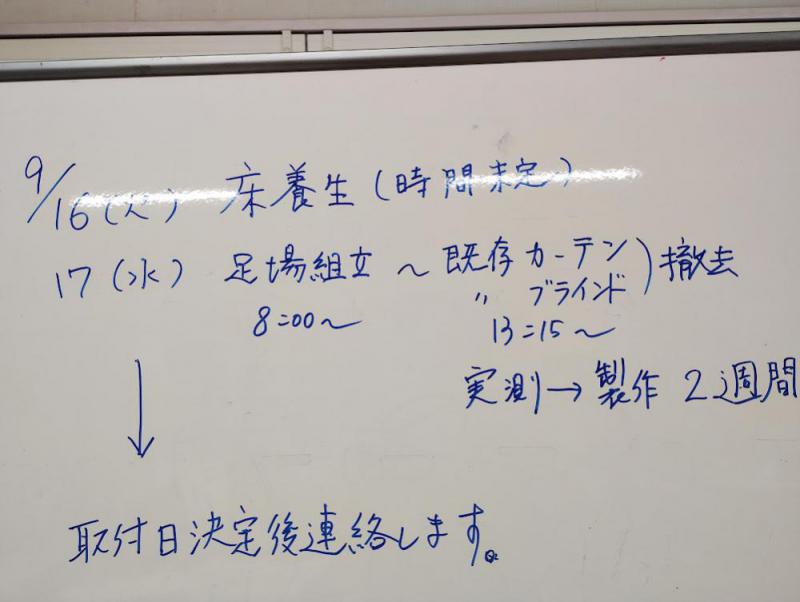 9/16(火) 床養生(時間未定)
17(水) 足場組立 〜 既存カーテン
〃 ブラインド) 撤去
8:00〜
13:15〜
実測→製作 2週間
↓
取付日決定後連絡します。